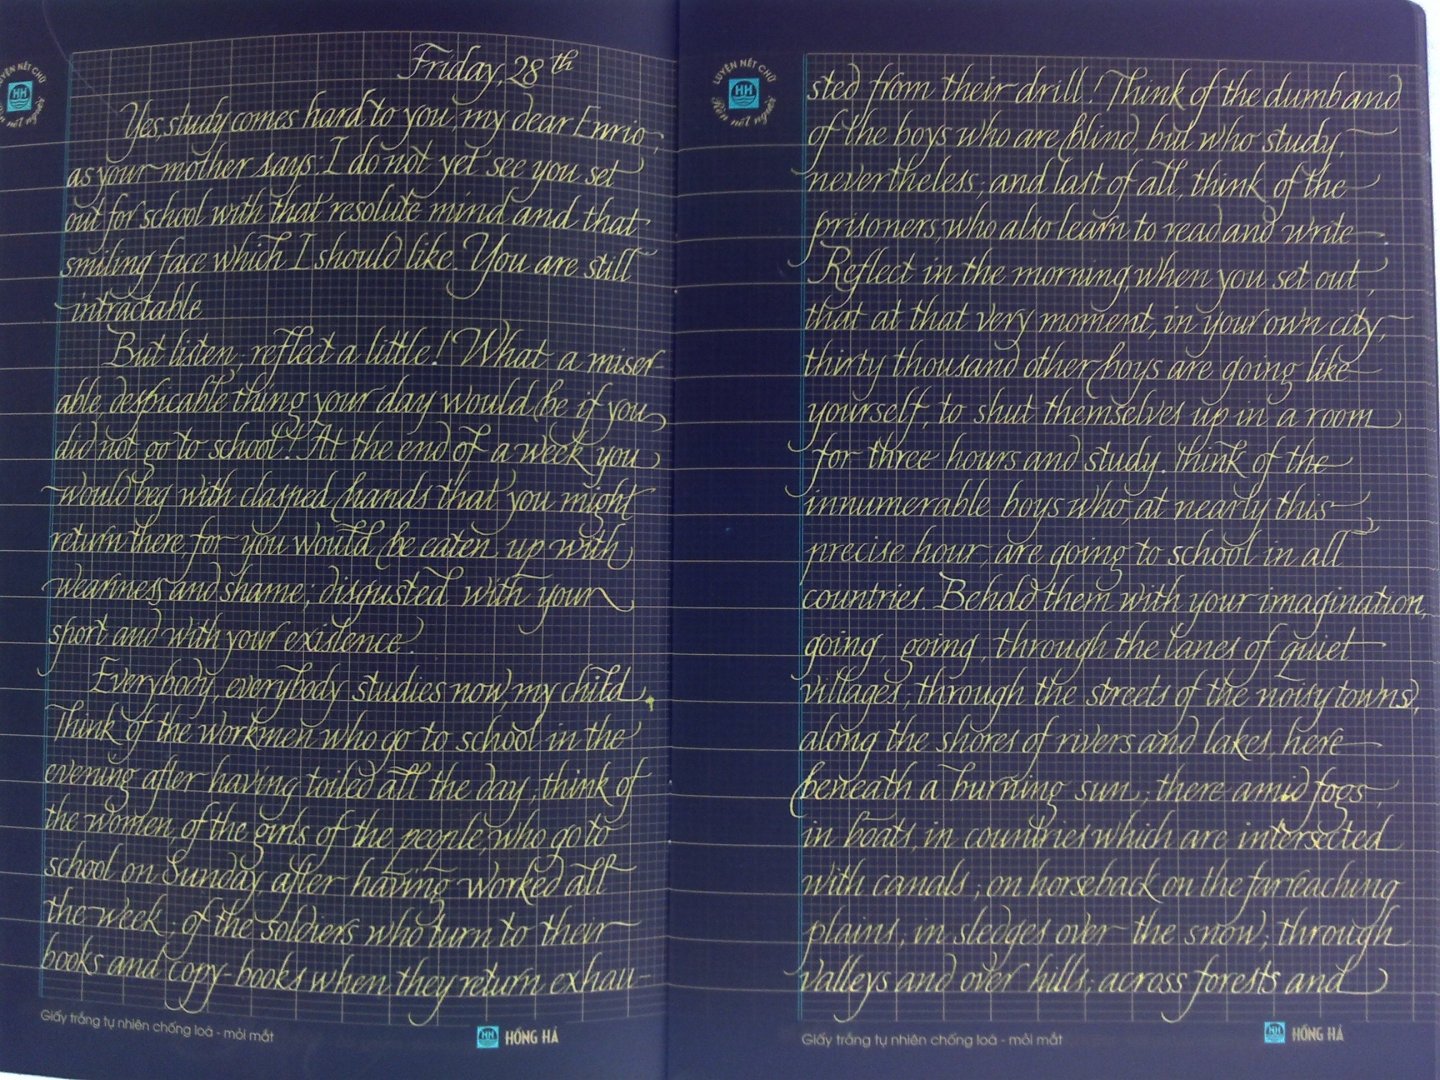 LUYỆN NẾT CHỮ
HH
Rèn nết người
Friday, 28th
Yes, study comes hard to you, my dear Enrio,
as your mother says: I do not yet see you set
out for school with that resolute mind and that
smiling face which I should like. You are still
intractable
But listen; reflect a little! What a miser
able, despicable thing your day would be if you
did not go to school! At the end of a week you
would beg with clasped hands that you might
return there, for you would be eaten up with
weariness and shame; disgusted with your
sport and with your existence.
Everybody, everybody studies now, my child.
Think of the workmen who go to school in the
evening after having toiled all the day; think of
the women, of the girls of the people, who go to
school on Sunday after having worked all
the week; of the soldiers who turn to their
books and copy-books when they return exhau-
Giấy trắng tự nhiên chống loá - mỏi mắt
HH HỒNG HÀ
LUYỆN NẾT CHỮ
HH
Rèn nết người
sted from their drill! Think of the dumb and
of the boys who are blind, but who study,
nevertheless; and last of all, think of the
prisoners, who also learn to read and write.
Reflect in the morning, when you set out,
that at that very moment, in your own city,
thirty thousand other boys are going like
yourself, to shut themselves up in a room
for three hours and study. Think of the
innumerable boys who, at nearly this
precise hour, are going to school in all
countries. Behold them with your imagination,
going, going, through the lanes of quiet
villages, through the streets of the noisy towns,
along the shores of rivers and lakes, here
beneath a burning sun; there amid fogs,
in boats, in countries which are intersected
with canals; on horseback on the far reaching
plains, in sledges over the snow; through
valleys and over hills; across forests and
Giấy trắng tự nhiên chống loá - mỏi mắt
HH HỒNG HÀ